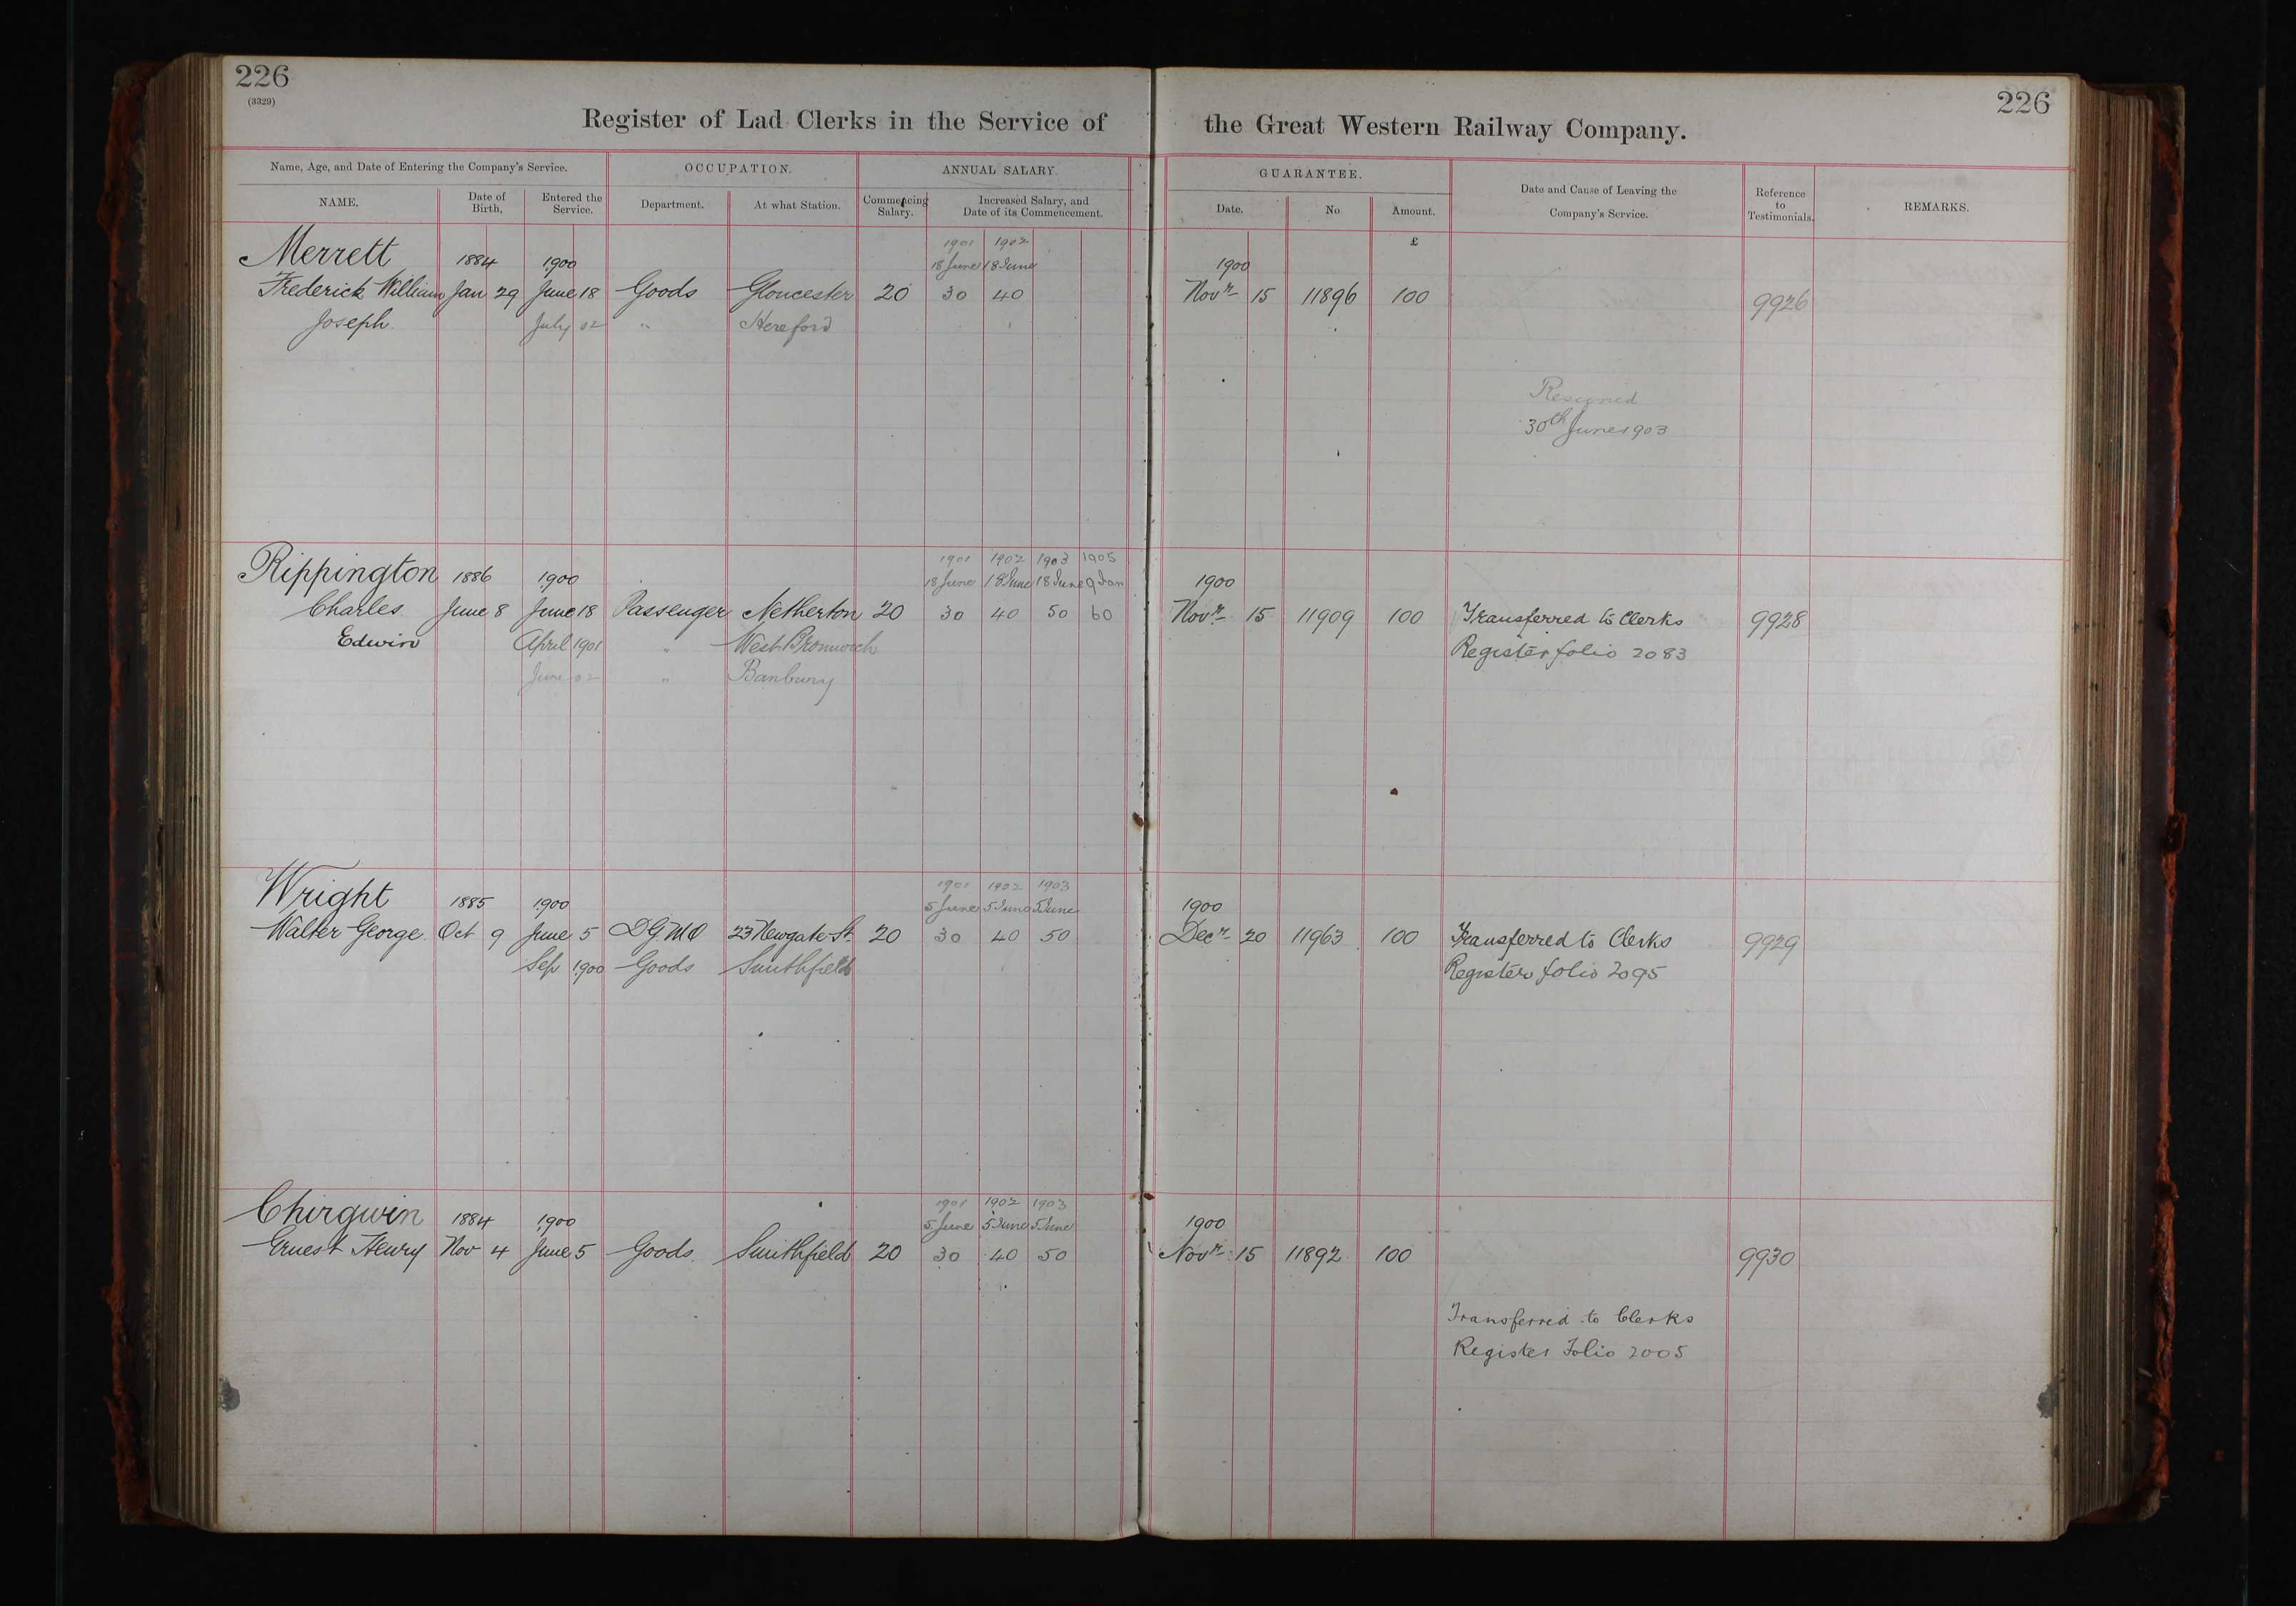 226
(3329)
226
Register of Lad Clerks in the Service of the Great Western Railway Company.
Name, Age, and Date of Entering the Company's Service.
OCCUPATION.
ANNUAL SALARY.
GUARANTEE.
Date and Cause of Leaving the
Company's Service.
Reference
to
Testimonials.
REMARKS.
NAME.
Date of
Birth,
Entered the
Service.
Department.
At what Station.
Commencing
Salary.
Increased Salary, and
Date of its Commencement.
Date.
No
Amount.
£
Merrett 1884 1900 1901 1902 1900
18 June 18 June
Frederick William Jan 29 June 18 Goods Gloucester 20 30 40 Novr 15 11896 100 9926
Joseph. July 02 " Hereford
Resigned
30th June 1903
1901 1902 1903 1905
Rippington 1886 1900 18 June 18 June 18 June 9 Jan 1900
Charles June 8 June 18 Passenger Netherton 20 30 40 50 60 Novr 15 11909 100 Transferred to Clerks 9928
Edwin April 1901 " West Bromwich Register folio 2083
June 02 " Banbury
1901 1902 1903
Wright 1885 1900 5 June 5 June 5 June 1900
Walter George Oct 9 June 5 DGMO 23 Newgate St. 20 30 40 50 Decr 20 11963 100 Transferred to Clerks 9929
Sep 1900 Goods Smithfield Register folio 2095
1901 1902 1903
Chirgwin 1884 1900 5 June 5 June 5 June 1900
Ernest Henry Nov 4 June 5 Goods Smithfield 20 30 40 50 Novr 15 11892 100 9930
Transferred to Clerks
Register Folio 2005